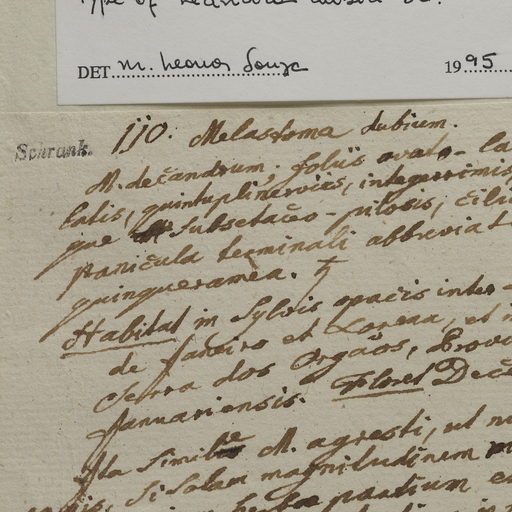 Type of Leandra dubia DC.
DET. M. Leonor Souza 1995
Schrank.
110. Melastoma dubium.
M. decandrum; foliis ovato-la
latis, quintuplinerviis, integerrimis,
que subsetaceo-pilosis, cilia
panicula terminali abbreviat
quinqueramea. ♄
Habitat in Sylvis opacis inter
de Janeiro et Lorena, et i
Serra dos Orgaõs, Provi
Januariensis. Floret Dece
Ita simile M. agresti, ut
si solam magnitudinem
herba partium